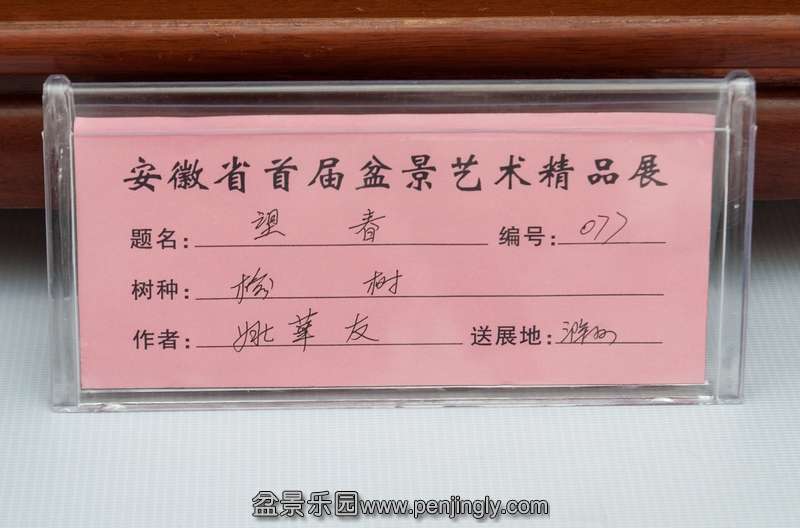 安徽省首届盆景艺术精品展
题名: 望春 编号: 077
树种: 榆树
作者: 姚華友 送展地: 滁州
盆景乐园www.penjingly.com